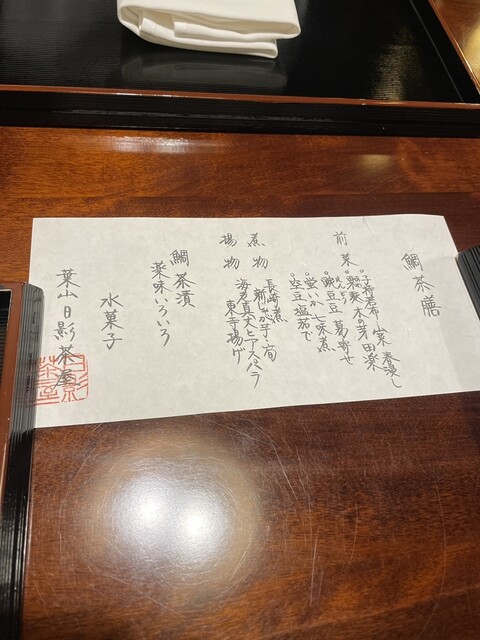 鯛茶膳
前菜
子持昆布 山葵 春浸し
木の芽田楽
豌豆豆腐 葛寄せ
蛍いか 七味煮
空豆 塩茹で
煮物
長崎煮
新じゃが芋・筍
揚物
海老真丈とアスパラ
東寺揚げ
鯛茶漬
薬味いろいろ
水菓子
葉山日影茶屋
日影茶屋